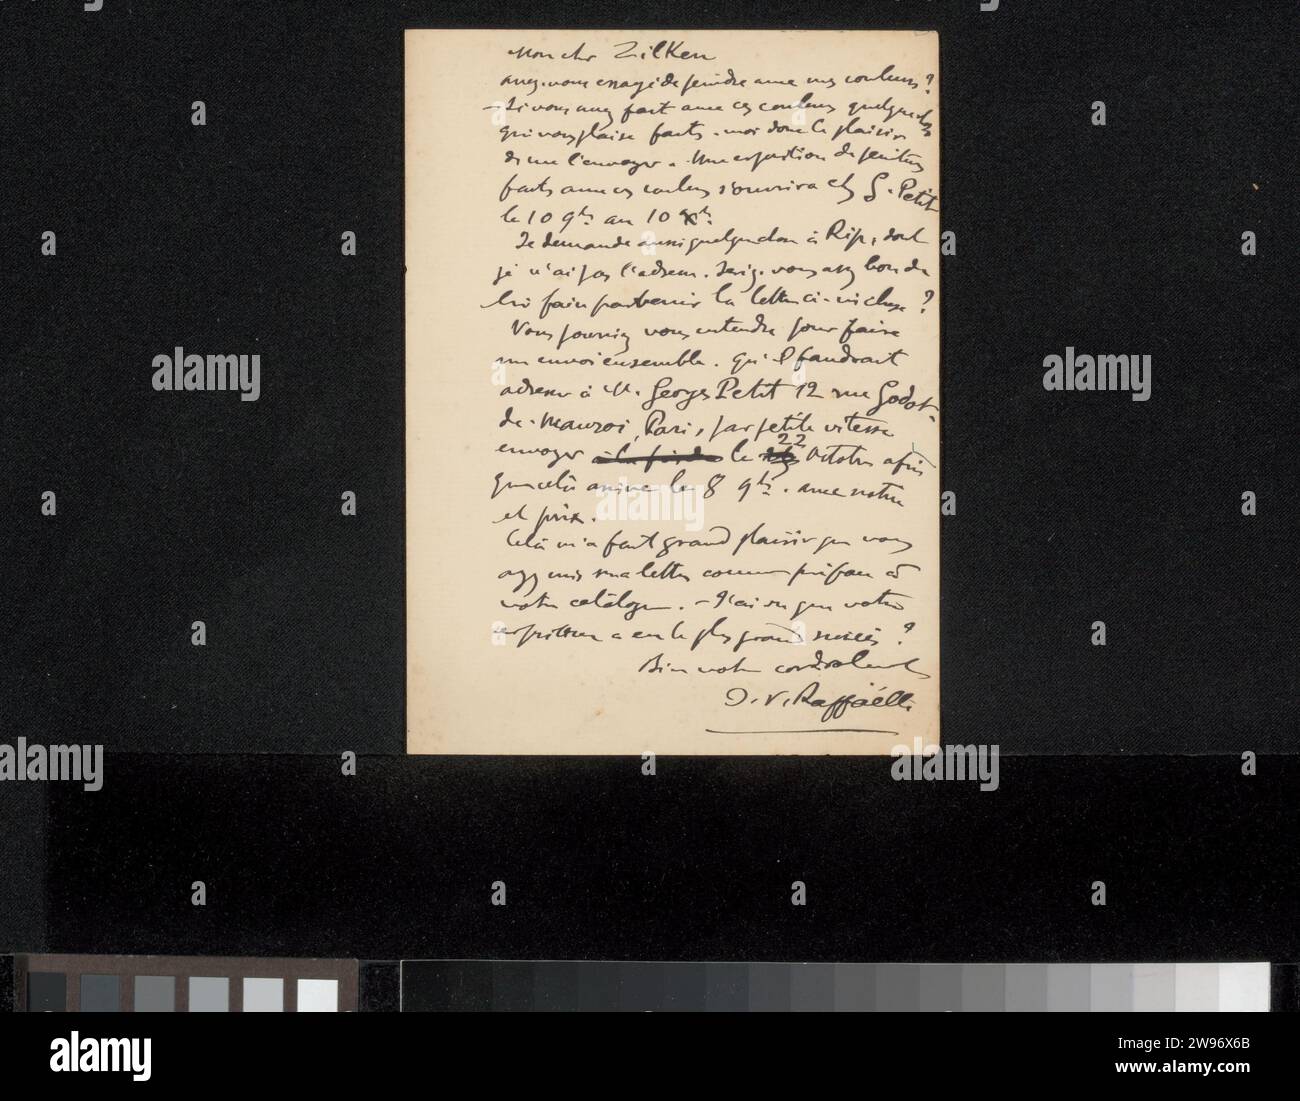 Mon cher Zilken
avez-vous essayé de peindre avec mes couleurs?
- Si vous avez fait avec ces couleurs quelque chose
qui vous plaise faites-moi donc le plaisir
de me l'envoyer. Une exposition de peintures
faites avec ces couleurs s'ouvrira chez G. Petit
le 10 9bre au 10 Xbre
Je demande aussi quelque chose à Rip, dont
je n'ai pas l'adresse. Seriez-vous assez bon de
lui faire parvenir la lettre ci-incluse?
Vous pourriez vous entendre pour faire
un envoi ensemble. qu'il faudrait
adresser à M. Georges Petit 12 rue Godot-
de-Mauroi, Paris, par petite vitesse
envoyer le 22 Octobre afin
que cela arrive le 8 9bre. avec notice
et prix.
Celà m'a fait grand plaisir que vous
ayez mis ma lettre comme préface à
votre catalogue. - J'ai su que votre
exposition a eu le plus grand succès?
Bien votre cordialement
J. F. Raffaëlli
alamy
Image ID: 2W96X6B
www.alamy.com